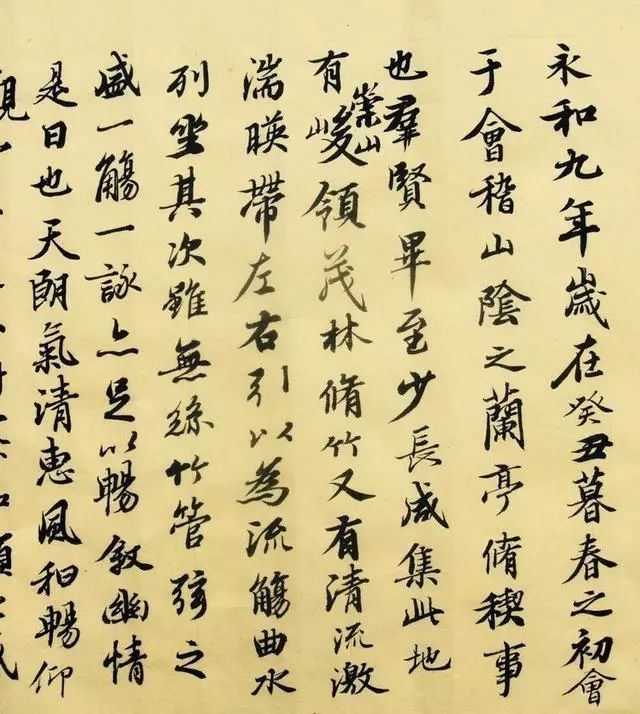 永和九年歲在癸丑暮春之初會
于會稽山陰之蘭亭脩稧事
也羣賢畢至少長咸集此地
有崇山峻領茂林脩竹又有清流激
湍暎帶左右引以為流觴曲水
列坐其次雖無絲竹管弦之
盛一觴一詠亦足以暢叙幽情
是日也天朗氣清惠風和暢仰